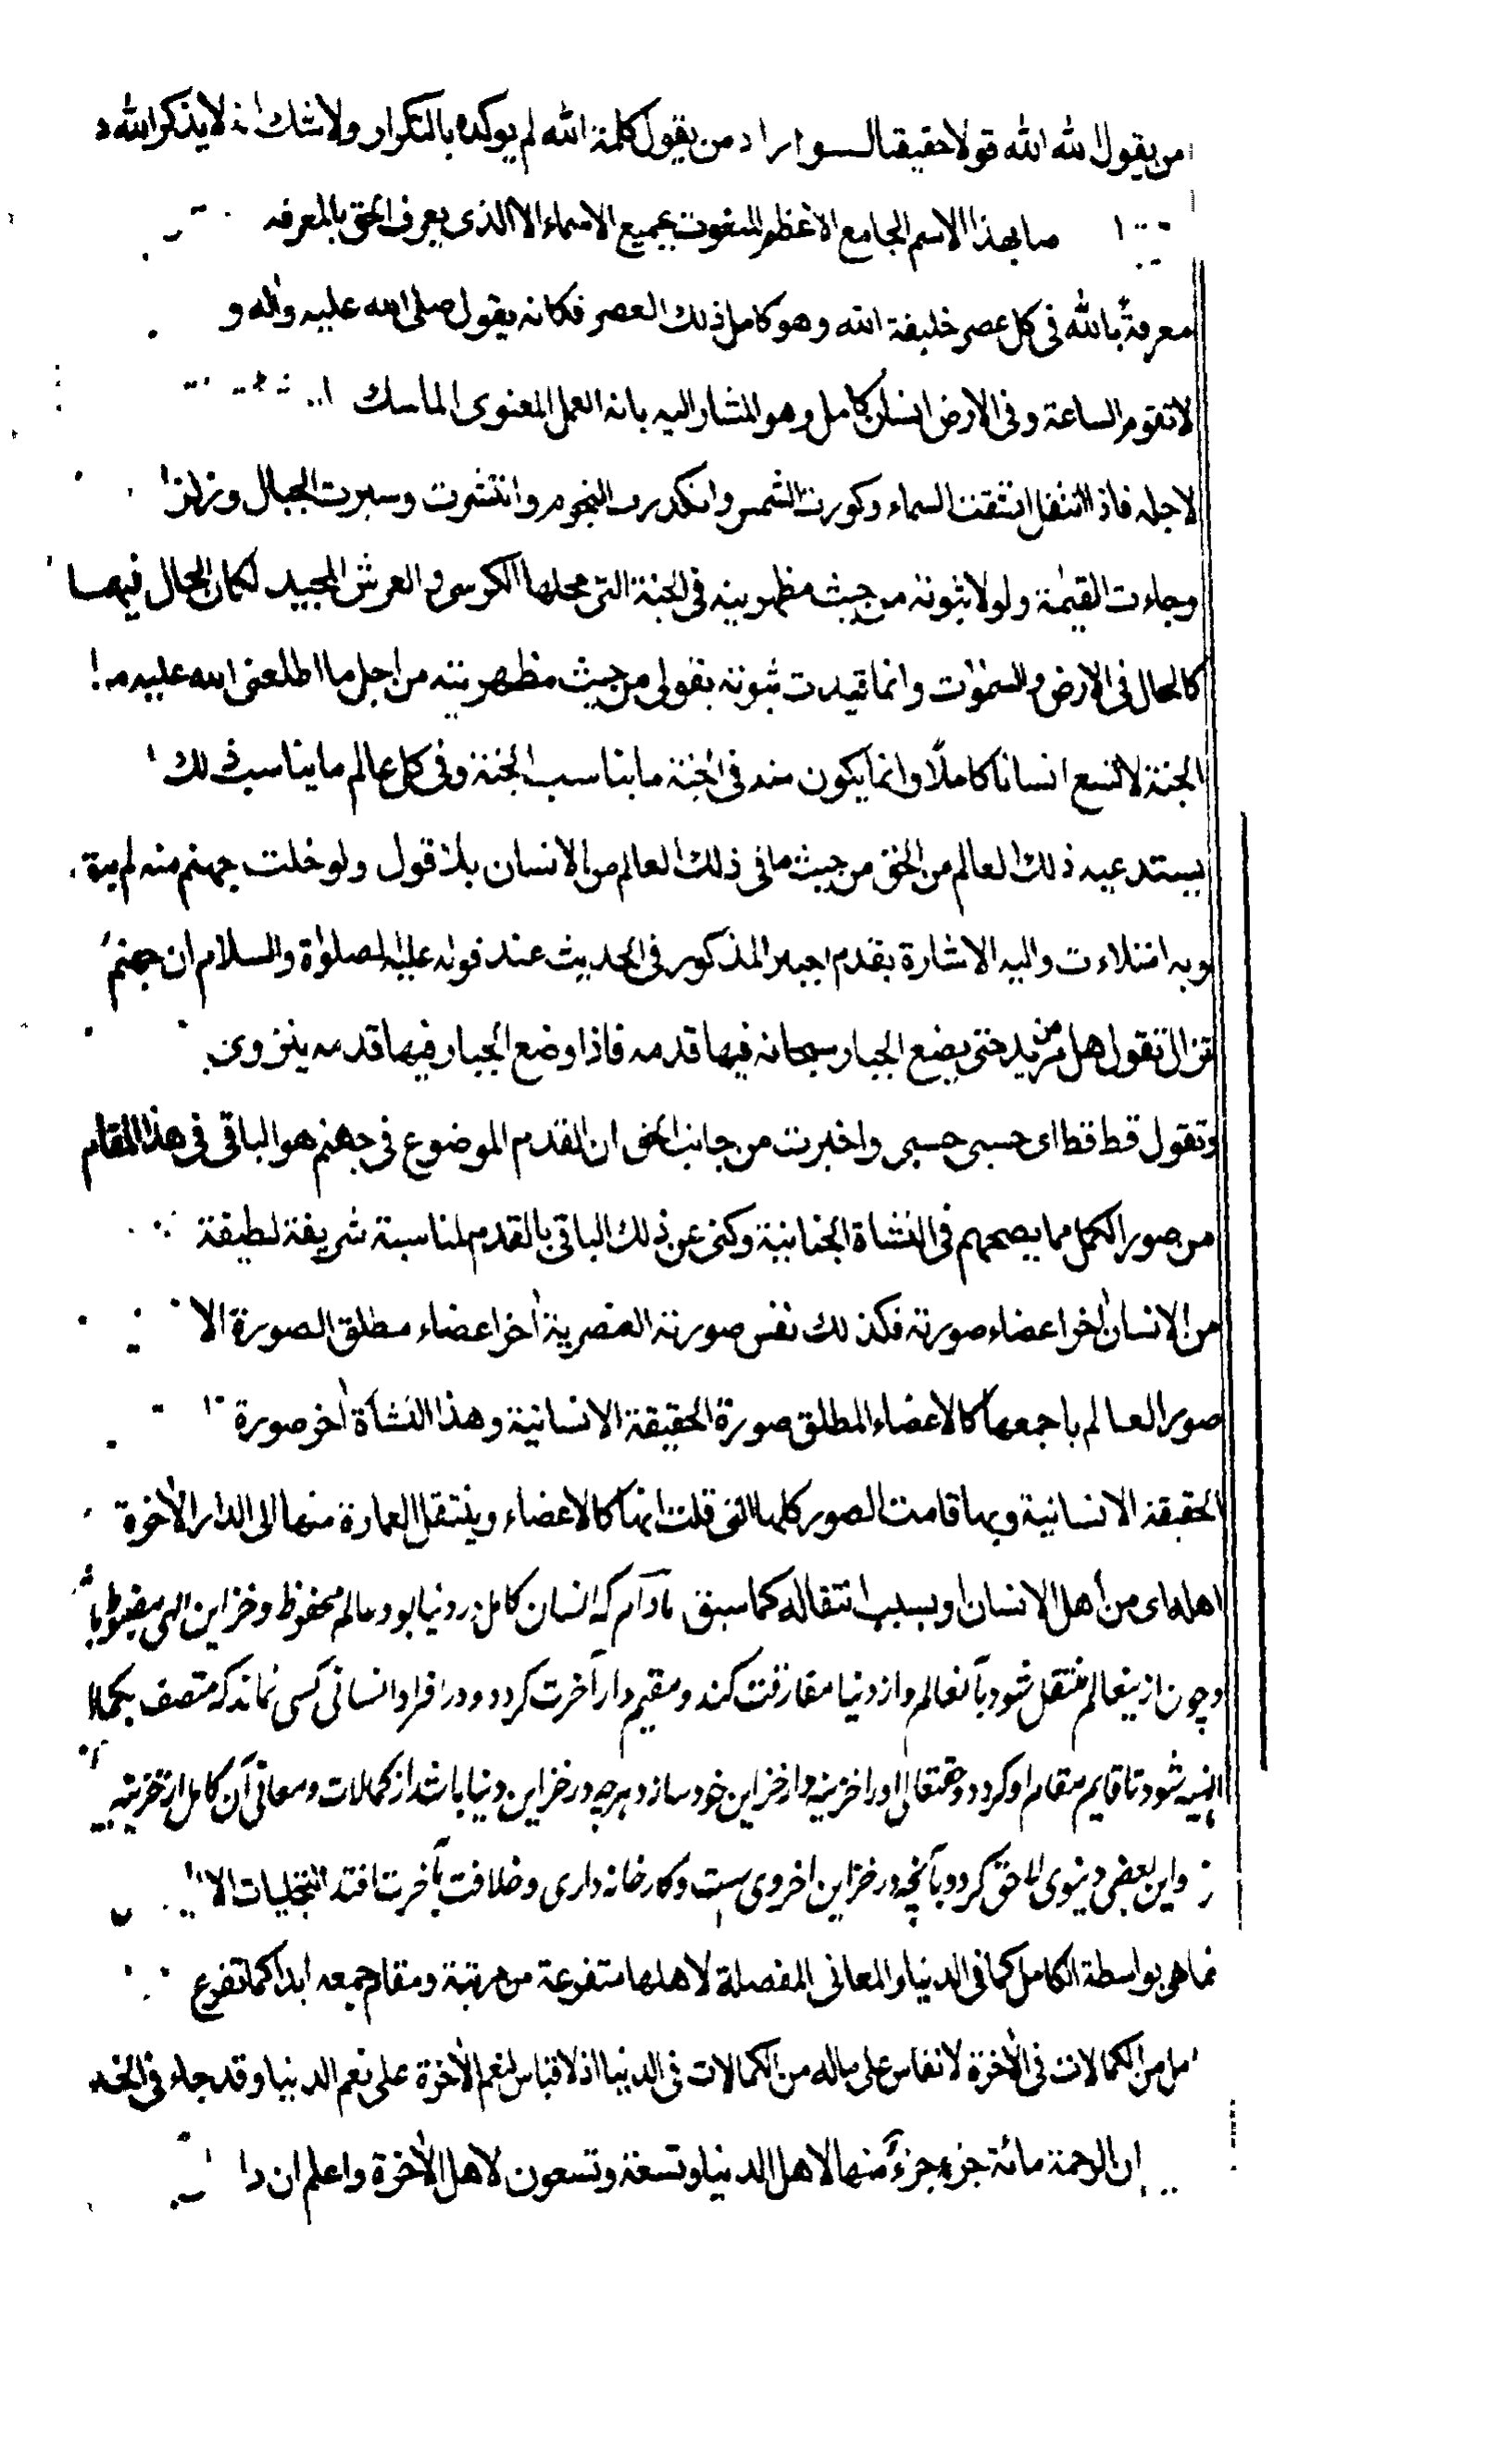 من يقول الله الله قولا حقيقيا اراد من يقول كلمة الله لم يوكده بالتكرار ولا شك انه لا يذكر الله
بهذا الاسم الجامع الاعظم المنعوت بجميع الاسماء الا الذى يعرف الحق بالمعرفه
معرفة بالله فى كل عصر خليفة الله وهو كامل ذلك العصر فكانه يقول صلى الله عليه واله و
لا تقوم الساعة وفى الارض انسان كامل وهو المشار اليه بانه العمد المعنوى الماسك
لاجله فاذا انتقل انشقت السماء وكورت الشمس وانكدرت النجوم وانتثرت وسيرت الجبال وزلز
وجاءت القيمة ولولا ثبوته من حيث مظهريته فى الجنة التى محلها الكرسى والعرش المجيد لكان الحال فيهما
كالحال فى الارض والسموات وانما قيدت ثبوته بقولى من حيث مظهريته من اجل ما اطلعنى الله عليه
الجنة لا تسع انسانا كاملا وانما يكون منه فى الجنة ما يناسب الجنة وفى كل عالم ما يناسب ذلك
يستدعيه ذلك العالم من الحق من حيث ما فى ذلك العالم من الانسان بل اقول ولو خلت جهنم منه لم
وبه امتلاءت واليه الاشارة بقدم الجبار المذكور فى الحديث عند قوله عليه الصلوة والسلام ان جهنم
تزال تقول هل من مزيد حتى يضع الجبار سبحانه فيها قدمه فاذا وضع الجبار فيها قدمه ينزوى
وتقول قط قط اى حسبى حسبى واخبرت من جانب الحق ان القدم الموضوع فى جهنم هو الباقى فى هذا المقام
من صور الكمل مما يصحبهم فى النشاة الجنانية وكنى عن ذلك الباقى بالقدم لمناسبة شريفة لطيفة
من الانسان آخر اعضاء صورته فكذلك نفس صورته العنصرية آخر اعضاء مطلق الصورة الا
صور العالم باجمعها كالاعضاء المطلق صورة الحقيقة الانسانية وهذا النشأة آخر صورة
الحقيقة الانسانية وبها قامت الصور كلها التى قلت انها كالاعضاء وينتقل العمارة منها الى الدار الآخرة
اهله اى من أهل الانسان او بسبب انتقاله كما سبق مادام كه انسان كامل در دنيا بود عالم محفوظ وخزاين الهى مضبوط
وچون ازينعالم منتقل شود بآنعالم واز دنيا مفارقت كند ومقيم دار آخرت كردد ودر افراد انسانى كسى نماند كه متصف
الهيه شود تا قايم مقام او كردد وحقتعالى او را خزينه دار خزاين خود سازد هرچه در خزاين دنيا باشد از كمالات ومعانى آن كامل از خزينه
واين بعض دنيوى لاحق كردد بآنچه در خزاين اخروى است وكارخانه دارى وخلافت بآخرت افتد التجليات
هى بواسطة الكامل كما فى الدنيا والمعانى المفصلة لاهلها متفرعة من مرتبة ومقام جمعه ابدا كما تفرع
من الكمالات فى الآخرة لا تقاس على ماله من الكمالات فى الدنيا اذ لا قياس لنعم الآخرة على نعم الدنيا وقد جاء فى
ان الرحمة مائة جزء جزء منها لاهل الدنيا وتسعة وتسعون لاهل الآخرة واعلم ان